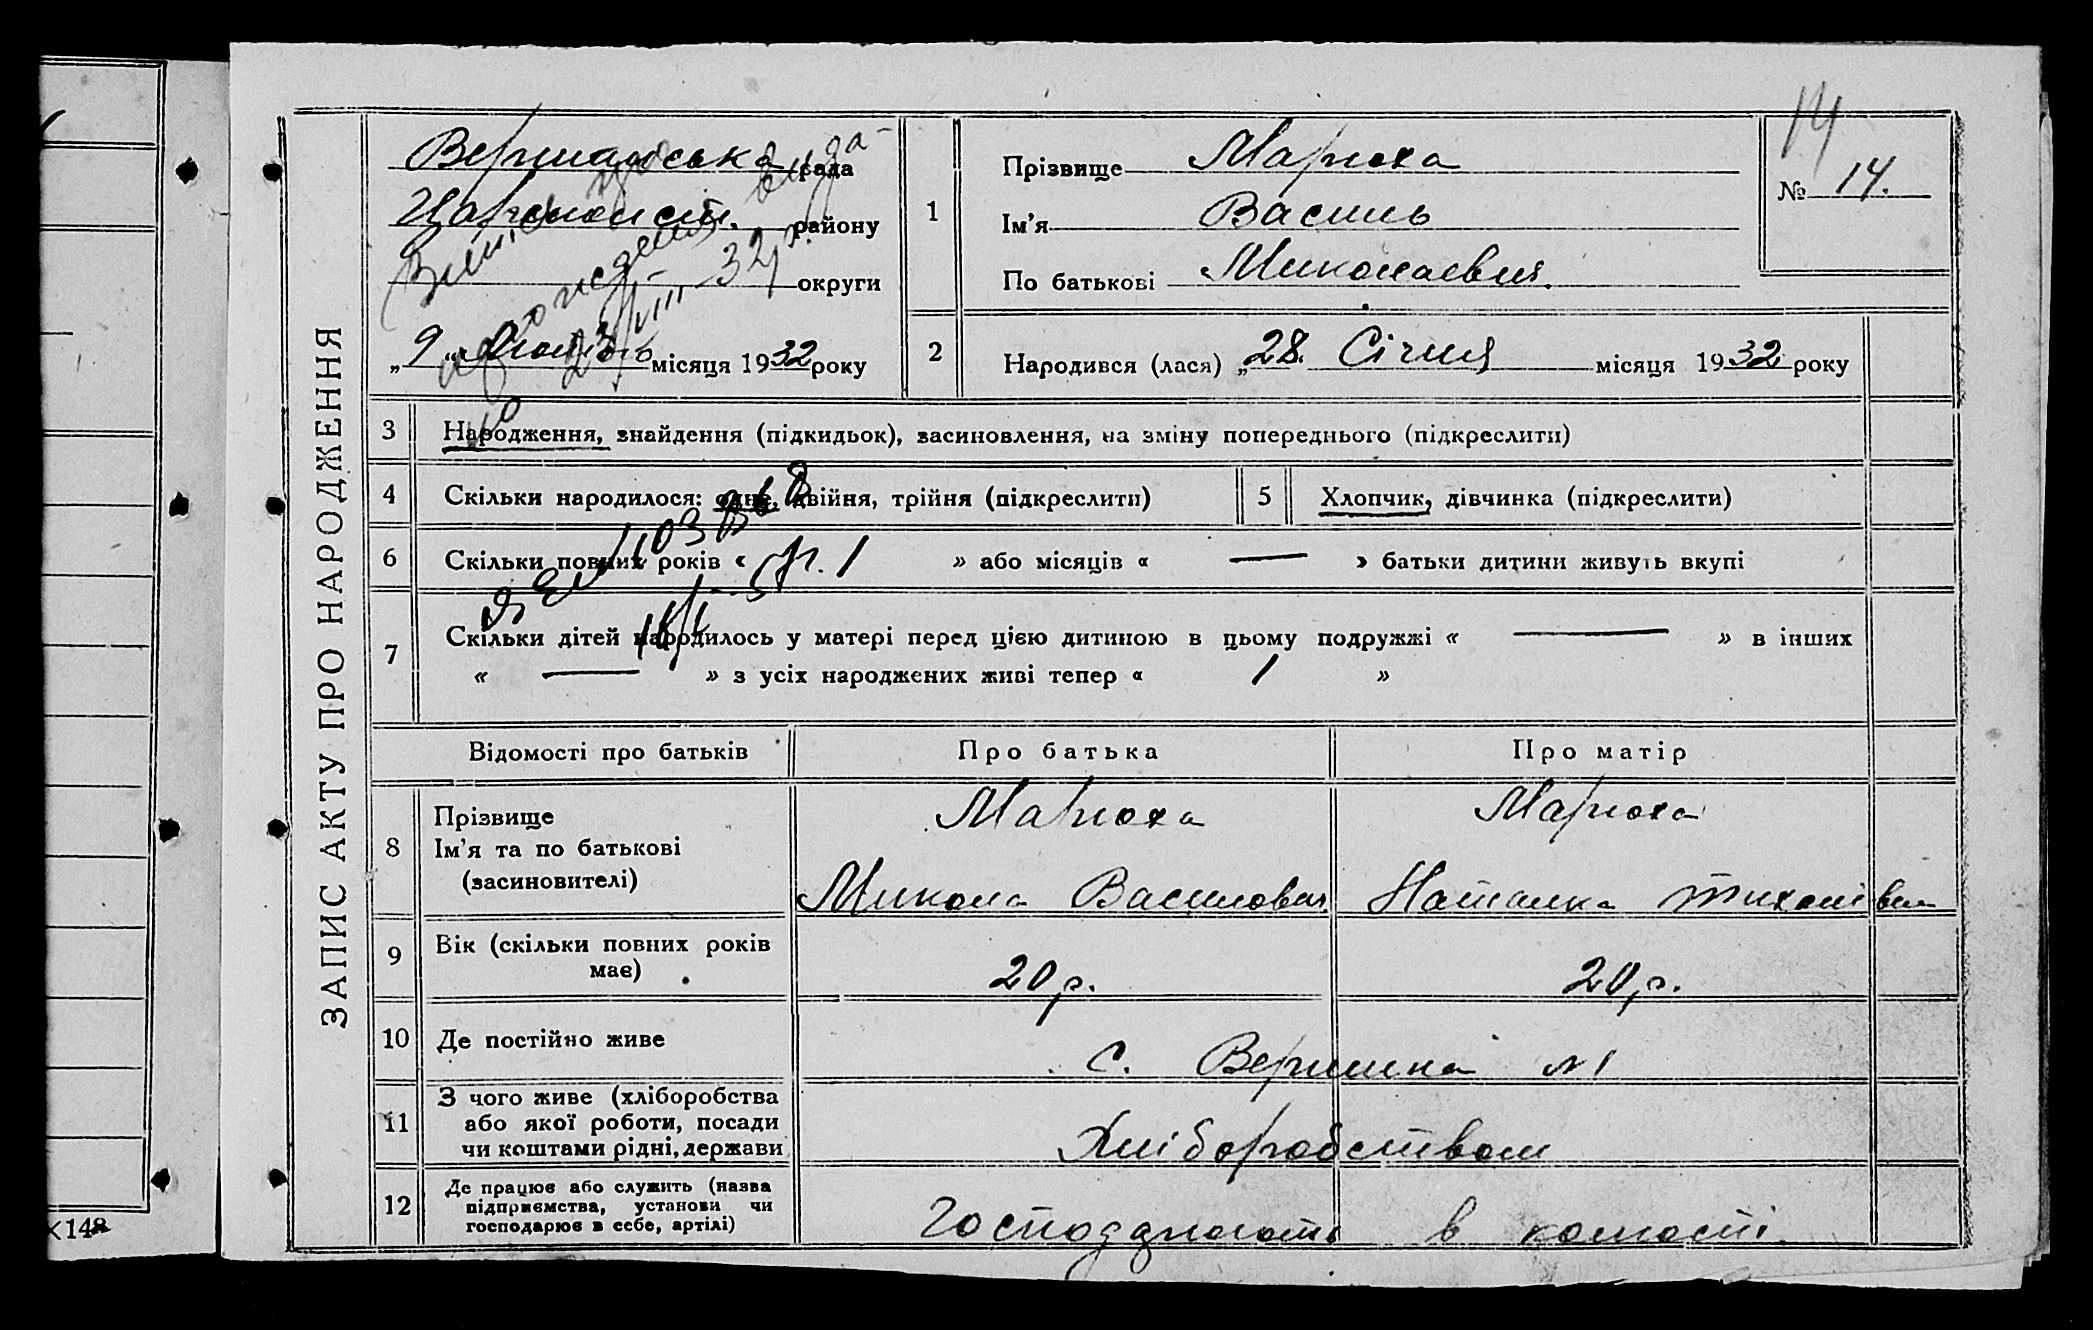 ЗАПИС АКТУ ПРО НАРОДЖЕННЯ
рада
району
округи
„ 9 “ місяця 1932 року
1
Прізвище Марюха
Ім'я Василь
По батькові Миколаевич.
14
№ 14.
2
Народився (лася) „ 28. Січня місяця 1932 року
3 Народження, знайдення (підкидьок), засиновлення, на зміну попереднього (підкреслити)
4 Скільки народилося: одне, двійня, трійня (підкреслити)
5 Хлопчик, дівчинка (підкреслити)
6 Скільки повних років « 1 » або місяців « — » батьки дитини живуть вкупі
7 Скільки дітей народилось у матері перед цією дитиною в цьому подружжі « — » в інших
« — » з усіх народжених живі тепер « 1 »
Відомості про батьків
Про батька
Про матір
8 Прізвище
Ім'я та по батькові
(засиновителі)
Марюха
Микола Василович
Марюха
Наталка Тихонівна
9 Вік (скільки повних років
має)
20 р.
20 р.
10 Де постійно живе
С. Вершина №1
11 З чого живе (хліборобства
або якої роботи, посади
чи коштами рідні, держави
Хліборобством
12 Де працює або служить (назва
підприємства, установи чи
господарює в себе, артілі)
в
148